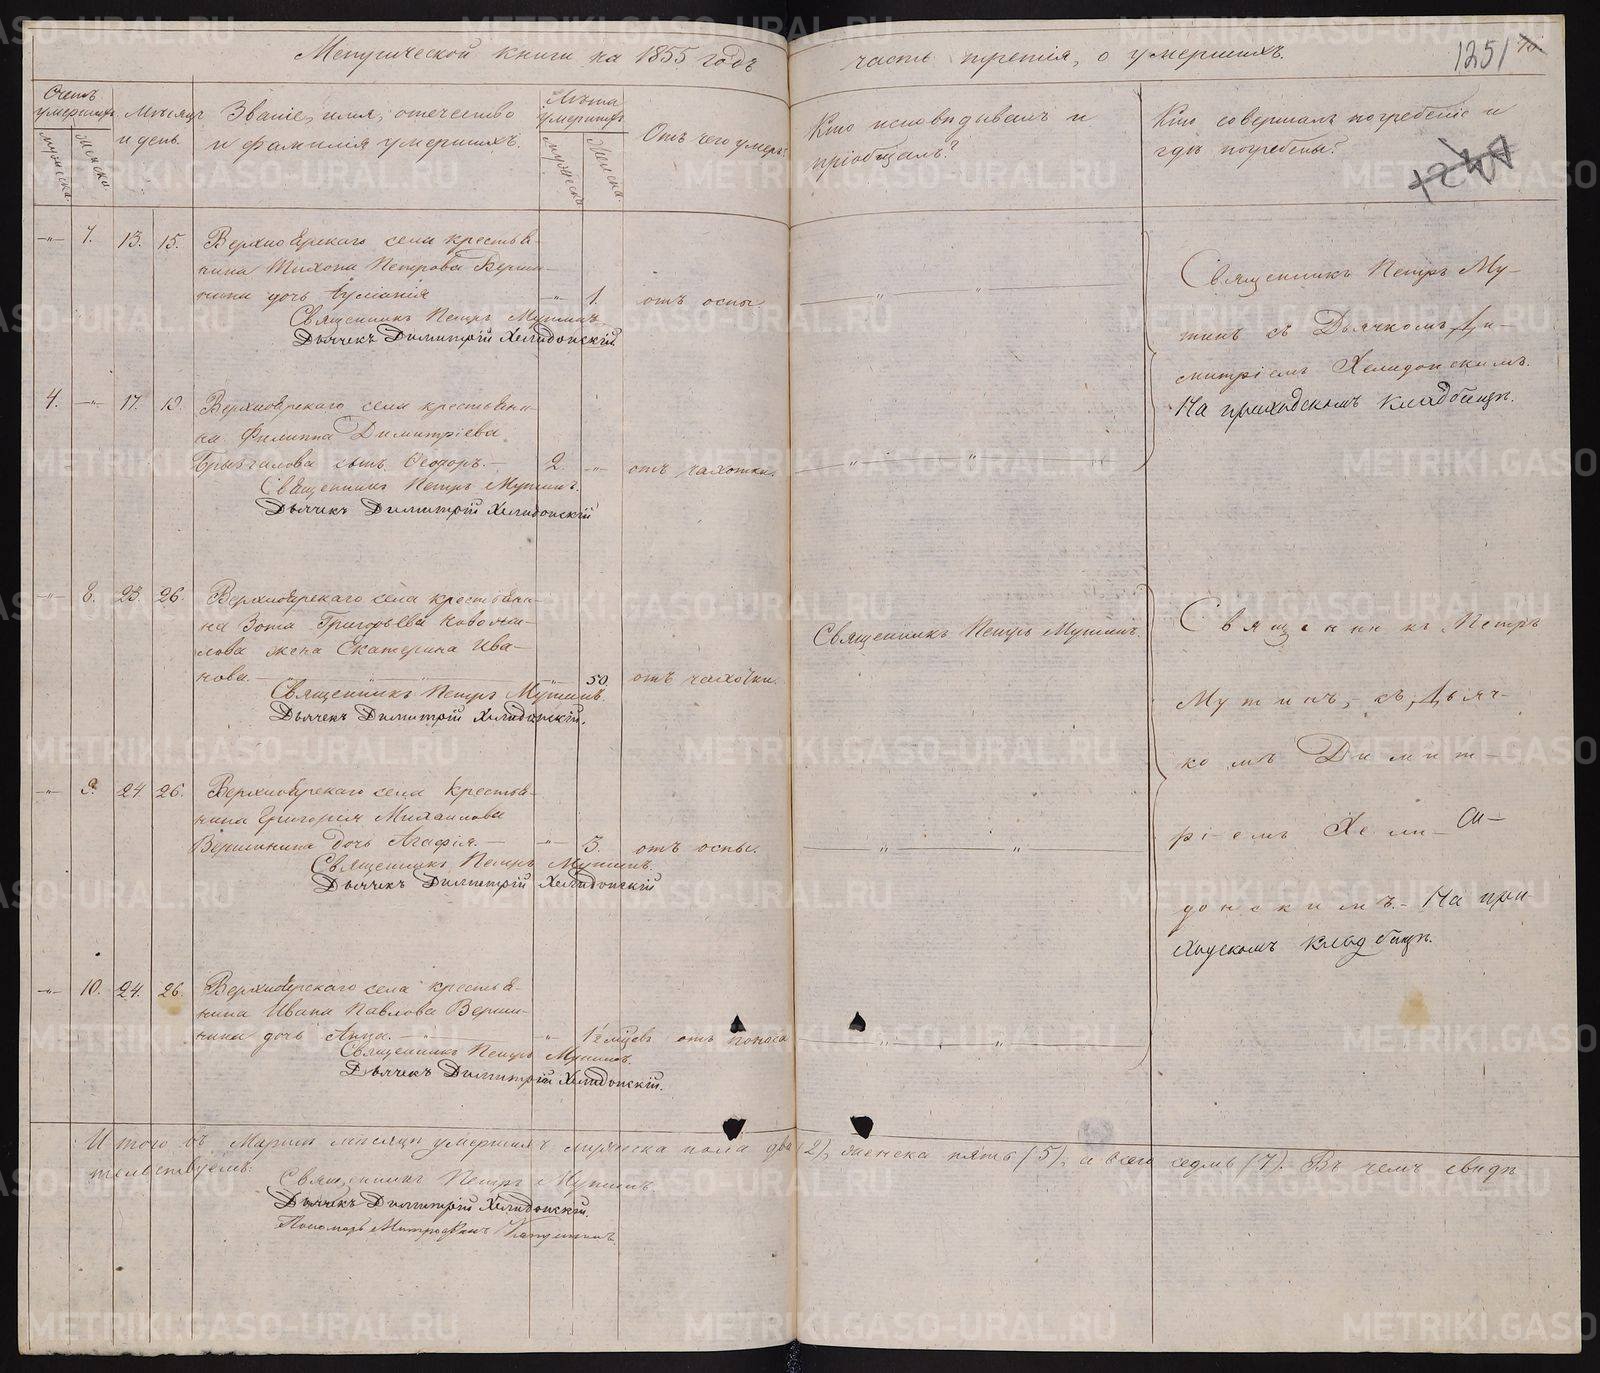 Метрической книги на 1855 годъ
часть третія, о умершихъ.
1251
Счетъ умершихъ
мужеска
женска
Мѣсяцъ и день.
Званіе, имя, отечество
и фамилія умершихъ.
Лѣта умершихъ
мужеска
женска
Отъ чего умеръ?
Кто исповѣдывалъ и
пріобщалъ?
Кто совершалъ погребеніе и
гдѣ погребены?
1240
-„- 7. 13. 15. Верхнеярскаго села крестья-
нина Тихона Петрова Верши-
нина дочь -„- 1. отъ оспы
Священникъ Петръ Мутинъ
Дьячекъ Димитрій Хелидонскій.
Священникъ Петръ Му-
тинъ съ Дьячкомъ Ди-
митріемъ Хелидонскимъ.
На приходскомъ кладбищѣ.
4. -„- 17. 19. Верхнеярскаго села крестьяни-
на Филиппа Димитріева
сынъ Ѳеодоръ. 2. -„- отъ чахотки.
Священникъ Петръ Мутинъ.
Дьячекъ Димитрій Хелидонскій
-„- 8. 23. 26. Верхнеярскаго села крестьяни-
на Зота Григорьева
жена Екатерина Ива-
нова. -„- 50 отъ чахотки.
Священникъ Петръ Мутинъ.
Дьячекъ Димитрій Хелидонскій.
Священникъ Петръ Мутинъ.
Священникъ Петръ
Мутинъ, съ Дьяч-
комъ Димит-
ріемъ Хели-
донскимъ. На при-
ходскомъ кладбищѣ.
-„- 9. 24 26. Верхнеярскаго села крестья-
нина Григорія Михаилова
Вершинина дочь Агафія. -„- 3. отъ оспы.
Священникъ Петръ Мутинъ.
Дьячекъ Димитрій Хелидонскій
-„- 10. 24. 26. Верхнеярскаго села крестья-
нина Ивана Павлова Верши-
нина дочь Анна. -„- 1½ мѣсяцъ отъ поноса
Священникъ Петръ Мутинъ.
Дьячекъ Димитрій Хелидонскій.
Итого въ Мартѣ мѣсяцѣ умершихъ мужеска пола два (2), женска пять (5), а всего седмь (7). Въ чемъ свидѣ-
тельствуемъ:
Священникъ Петръ Мутинъ.
Дьячекъ Димитрій Хелидонскій.
Пономарь Митрофанъ
METRIKI.GASO-URAL.RU